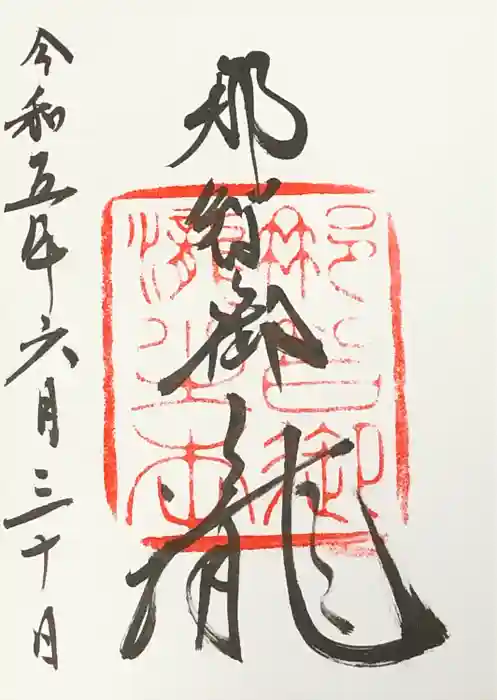 那智御瀧
令和五年六月三十日